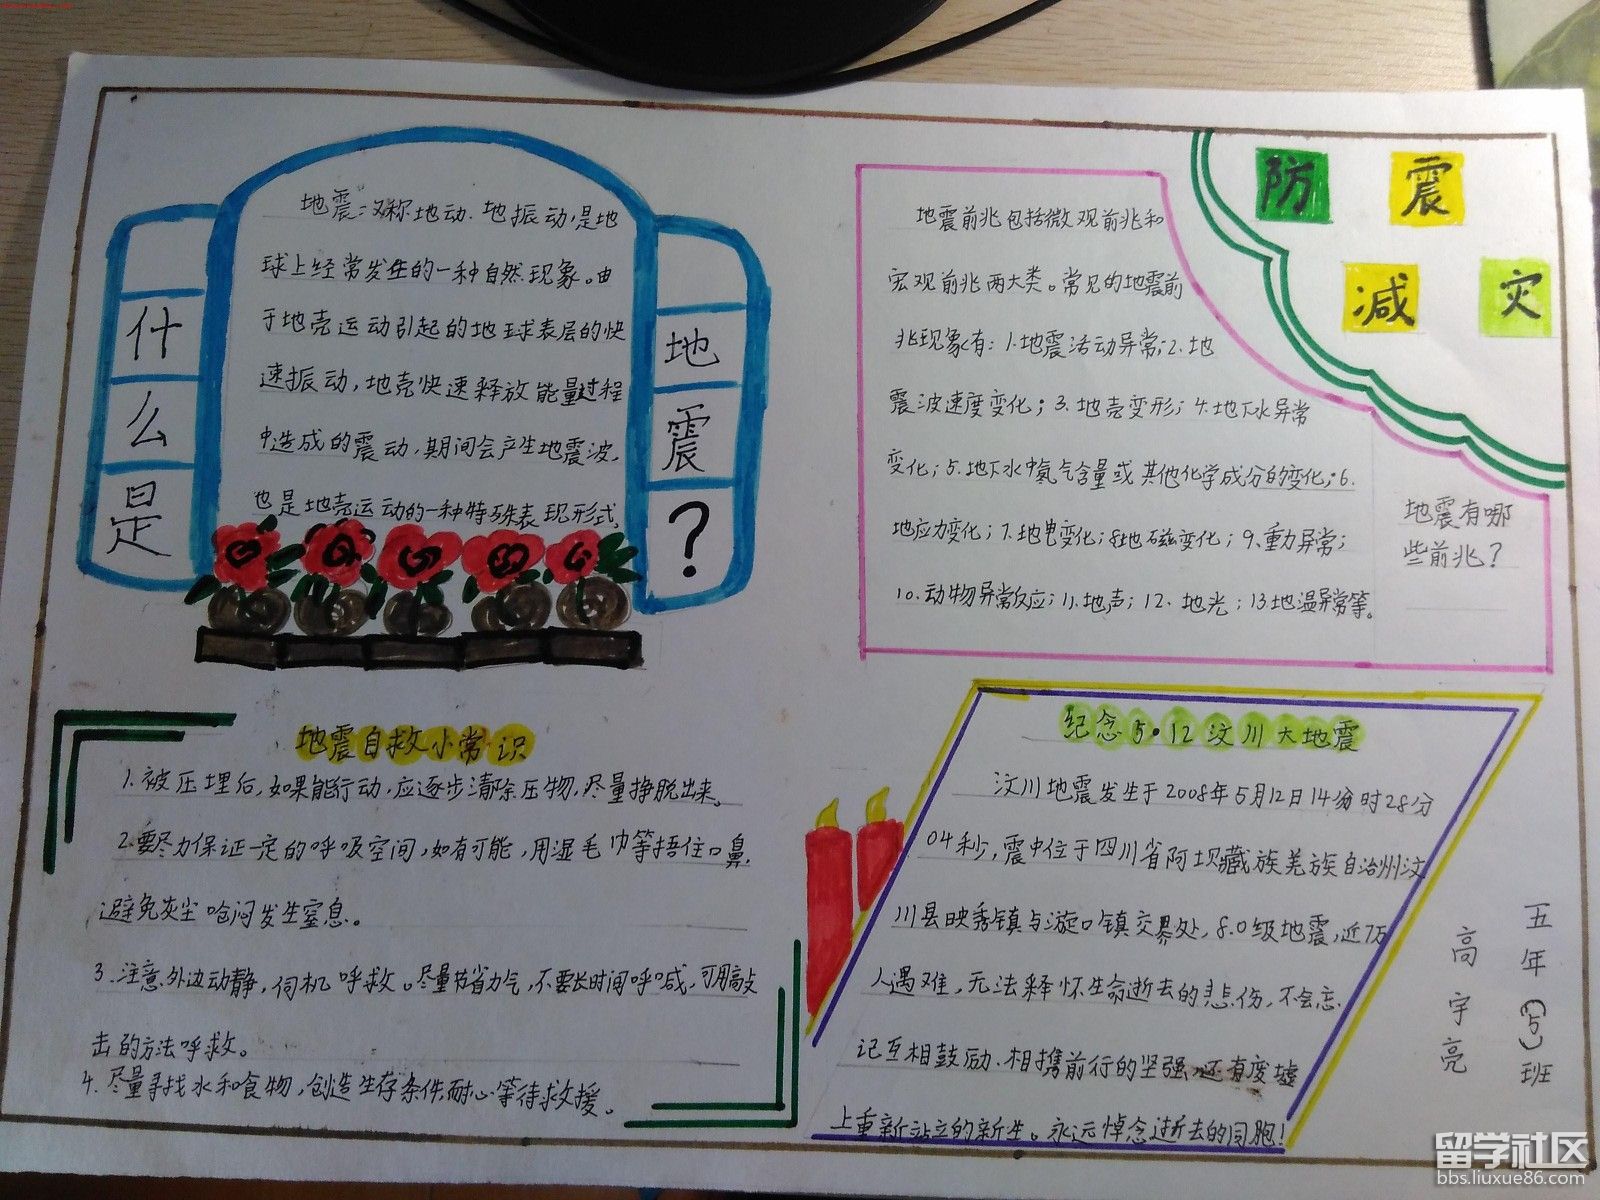 防震
减灾
什么是
地震?
地震又称地动、地振动,是地
球上经常发生的一种自然现象。由
于地壳运动引起的地球表层的快
速振动,地壳快速释放能量过程
中造成的震动,期间会产生地震波,
也是地壳运动的一种特殊表现形式,
地震前兆包括微观前兆和
宏观前兆两大类。常见的地震前
兆现象有:1.地震活动异常;2.地
震波速度变化;3.地壳变形;4.地下水异常
变化;5.地下水中氡气含量或其他化学成分的变化;6.
地应力变化;7.地电变化;8地磁变化;9.重力异常;
10.动物异常反应;11.地声;12.地光;13地温异常等。
地震有哪
些前兆?
地震自救小常识
1.被压埋后,如果能行动,应逐步清除压物,尽量挣脱出来。
2.要尽力保证一定的呼吸空间,如有可能,用湿毛巾等捂住口鼻,
避免灰尘呛闷发生窒息。
3.注意外边动静,伺机呼救。尽量节省力气,不要长时间呼喊,可用敲
击的方法呼救。
4.尽量寻找水和食物,创造生存条件,耐心等待救援。
纪念5·12汶川大地震
汶川地震发生于2008年5月12日14分时28分
04秒,震中位于四川省阿坝藏族羌族自治州汶
川县映秀镇与漩口镇交界处,8.0级地震,近7万
人遇难,无法释怀生命逝去的悲伤,不会忘
记互相鼓励、相携前行的坚强,还有废墟
上重新站立的新生。永远悼念逝去的同胞!
五年(5)班
高宇亮
留学社区
bbs.liuxue86.com